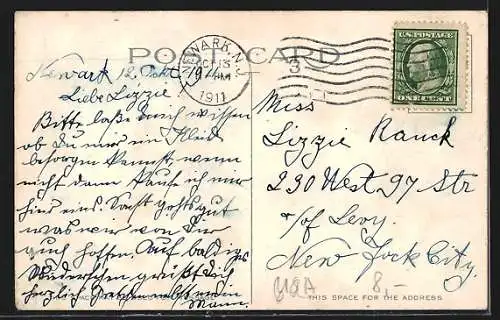 POST CARD
NEWARK, N.J.
OCT 13
1911
3
U.S. POSTAGE
ONE CENT
Newark 12. Okt. 1911.
Liebe Lizzie
Bitte laße mich wissen
ob Du mir ein Kleid
besorgen kannst, wenn
nicht dann kaufe ich mir
hier eins. Sonst gehts gut
was wir von Dir
auch hoffen. Auf baldiges
Wiedersehen grüßt Dich
herzlich
Mann.
Miss
Lizzie Rauck
230 West 97 Str
c/of Levy.
New York City
USA 8,-
THIS SPACE FOR THE ADDRESS